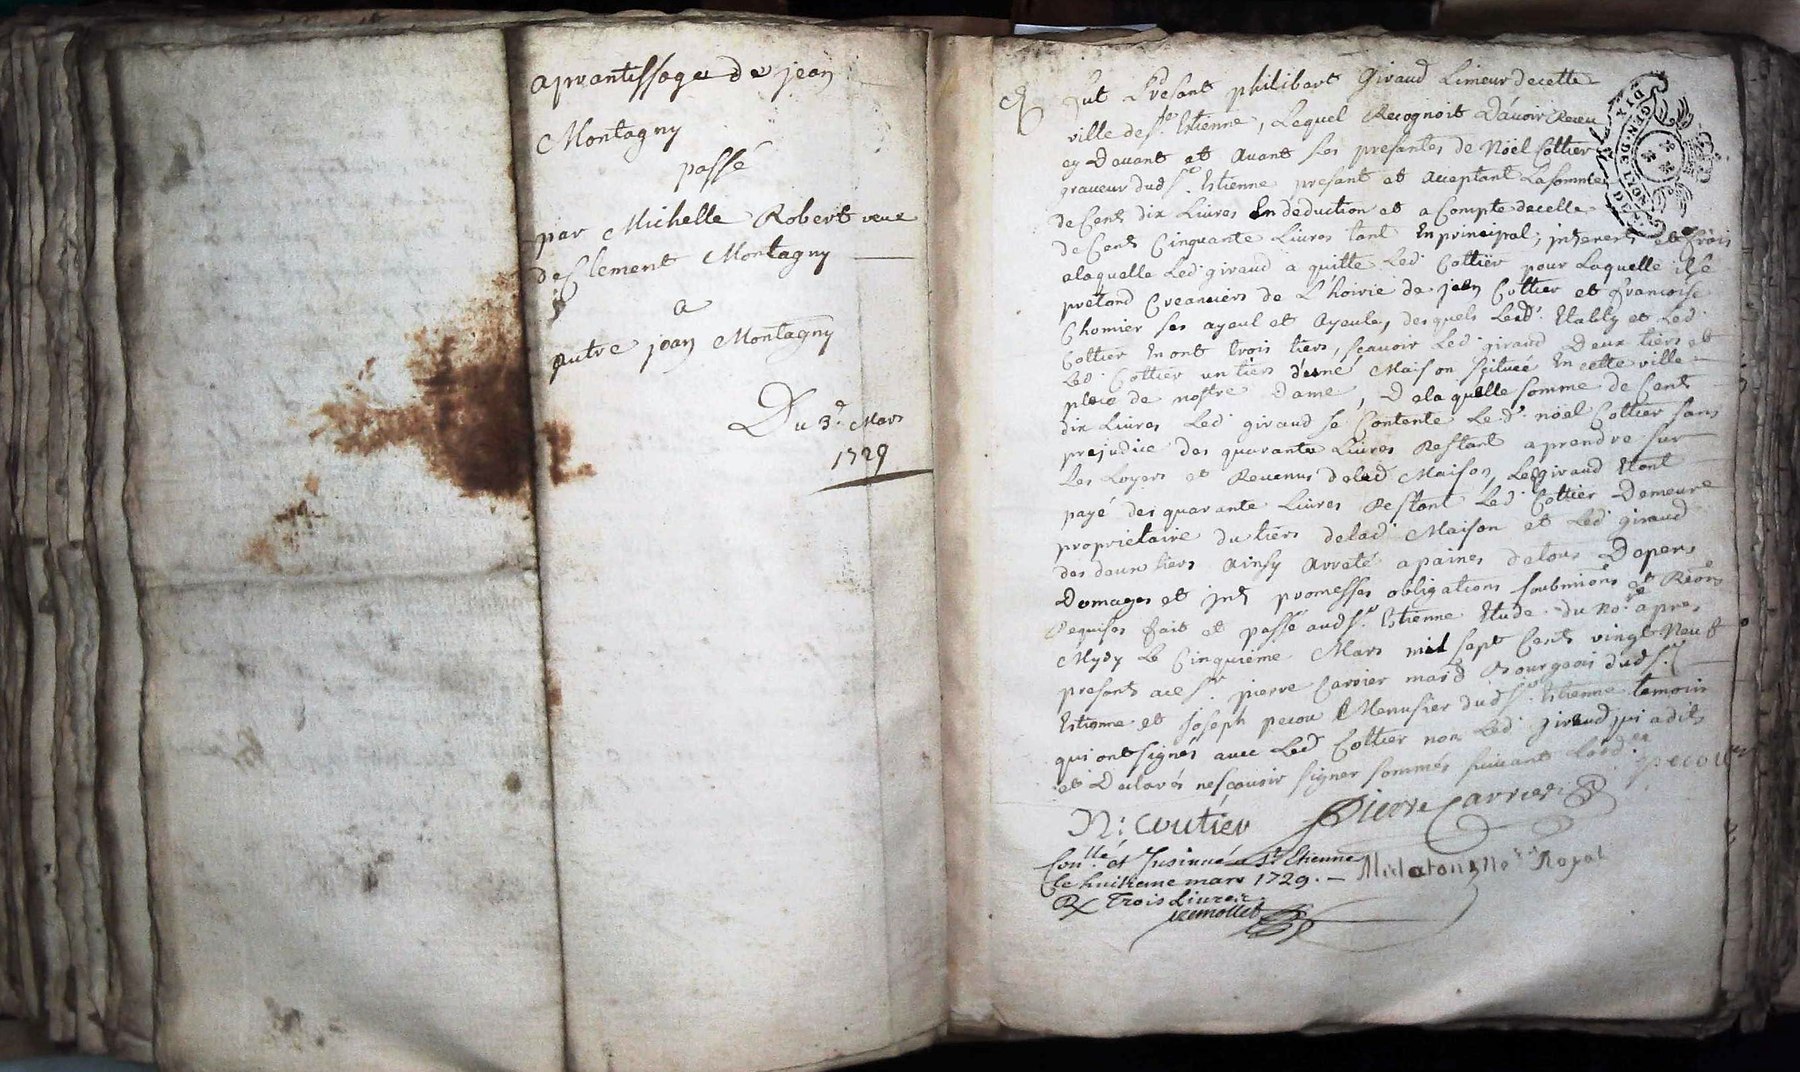 aprantissage de jean
Montagny
passé
par Michelle Robert veuve
de Clement Montagny
a
autre jean Montagny
Du 3e. Mars
1729
Fut Présant philibert Giraud Limeur de cette
ville de St. Etienne, Lequel Recognoit D'avoir Receu
cy Devant et avant Les presantes de Nöel Cottier
graveur dud St. Etienne present et acceptant La somme
de Cent dix Livres En deduction et a Compte de celle
de Cent Cinquante Livres tant En principal, interests et frais
a laquelle Led. giraud a quitté Led. Cottier pour Laquelle il se
pretend Creanciers de L'hoirie de jean Cottier et francoise
Chomier ses ayeul et Ayeule, desquels Led. et Led.
Cottier En ont trois tiers, scavoir Led. giraud Deux tiers et
Led. Cottier un tiers d'une Maison scituée En cette ville
place de nostre Dame, De laquelle somme de Cent
dix Livres Led. giraud se Contente Led. nöel Cottier sans
prejudice des quarante Livres Restant a prendre sur
Les Loyers et Revenus de lad. Maison, Led giraud Etant
payé des quarante Livres Restant Led. Cottier Demeure
proprietaire du tiers de lad. Maison et Led. giraud
des deux tiers Ainsy Arreté a paines de tous Depens
Domages et Int. promesses obligations soubmions et Reons
Requises fait et passé aud St. Etienne Etude du nore. apres
Mydy Le Cinquiéme Mars mil sept Cents vingt Neuf
presents a ce Sr. pierre Carrier mard Bourgeois dud St.
Etienne et Joseph pecou Menusier dud St. Etienne temoins
qui ont signés avec Led. Cottier non Led. giraud qui a dit
et Declarés ne scavoir signer sommés suivant Lord. pecou
N: coutier Pierre Carrier
Conllé et Insinué a St. Etienne
le huitieme mars 1729. Royal
R Trois Livres
GEN. DE LYON